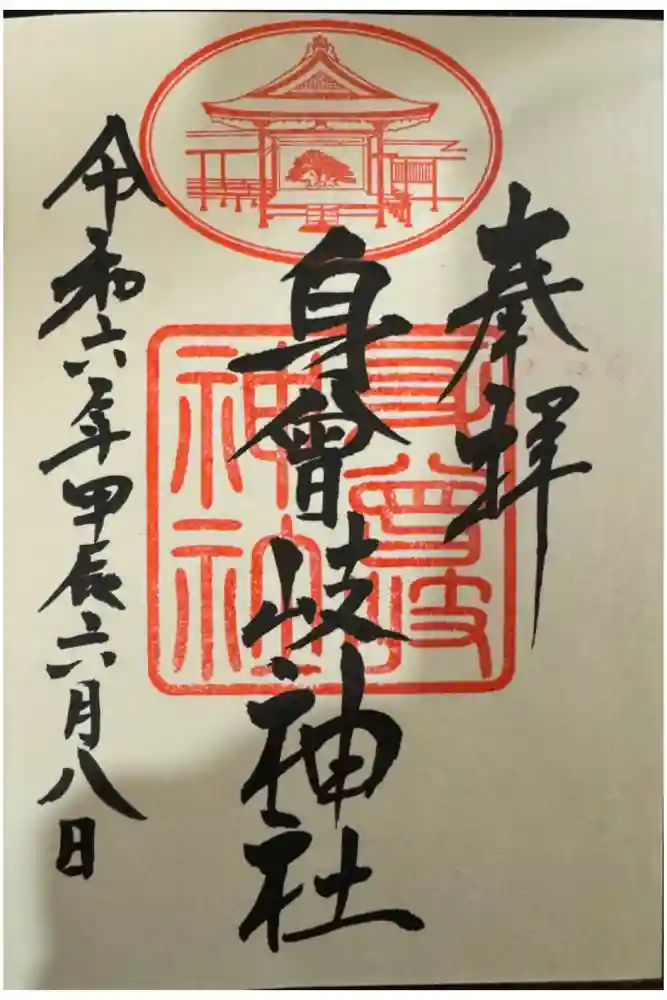 奉拝
身曾岐神社
身曾岐神社
令和六年甲辰六月八日